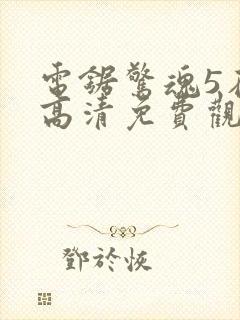 電鋸驚魂5在
高清免費觀
鄧於恢